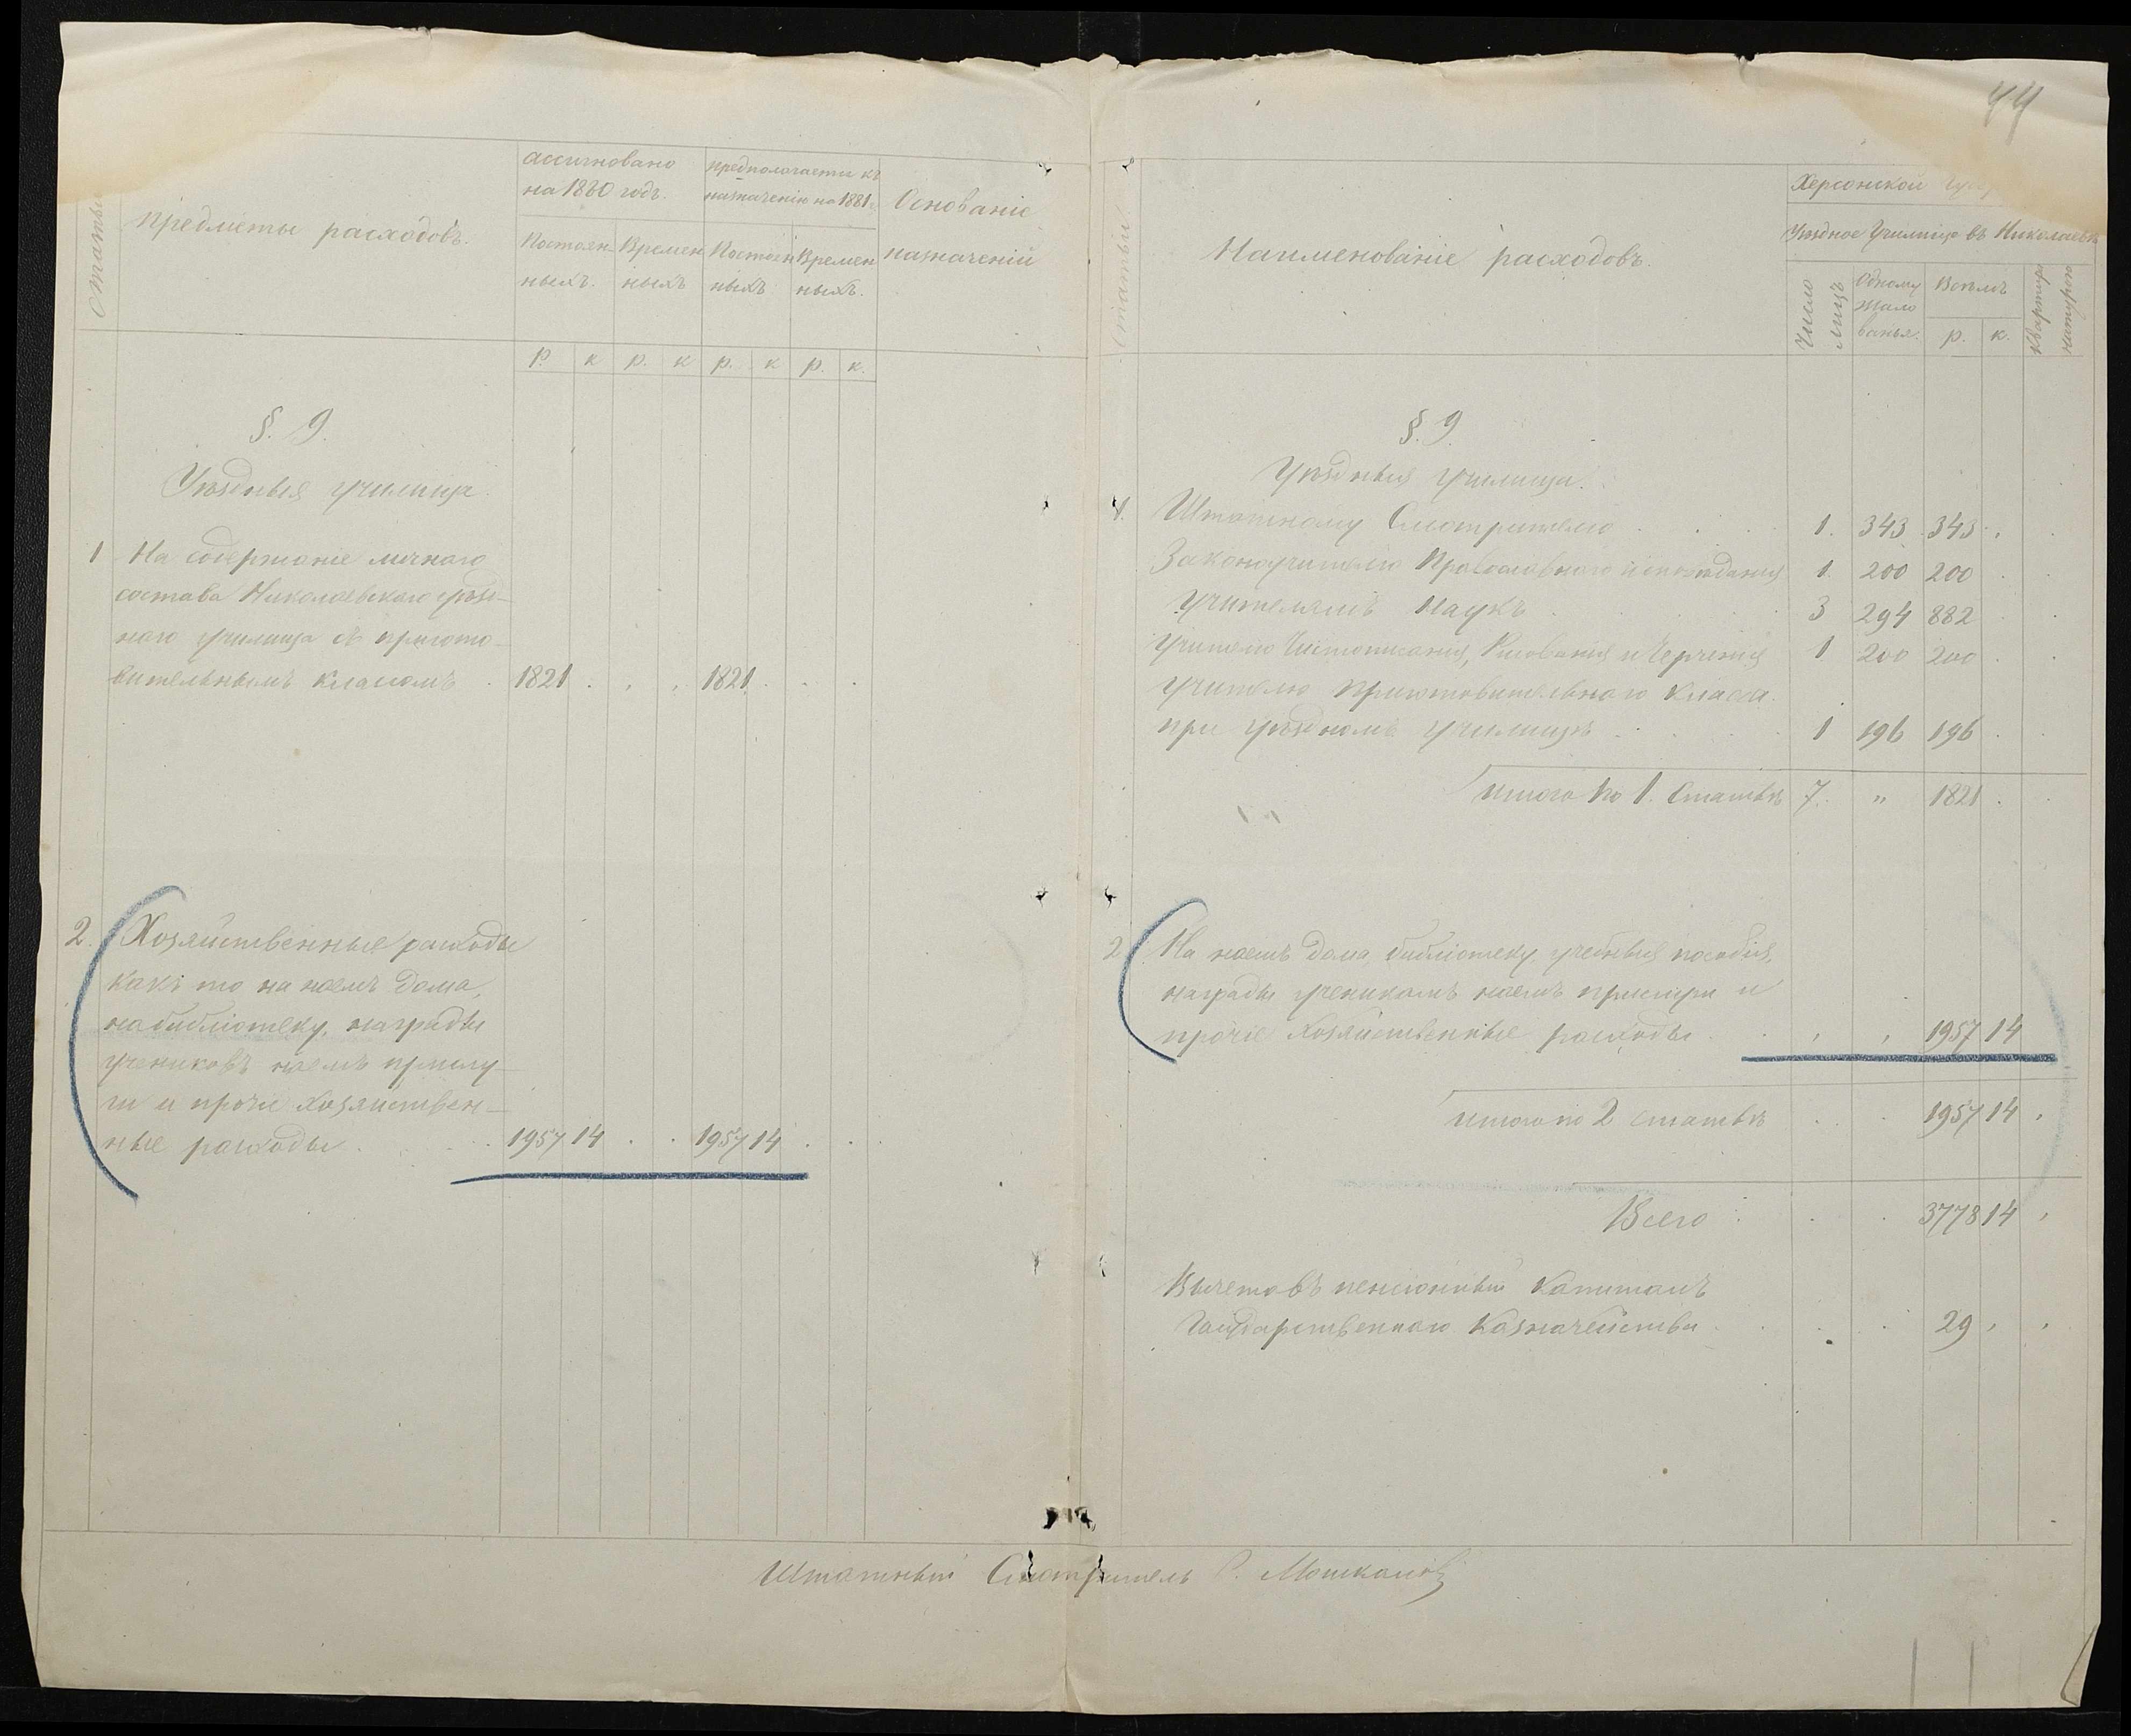 44
Статьи
Предметы расходовъ.
ассигновано
на 1880 годъ.
предполагается къ
назначенію на 1881 г.
Основаніе
назначеній
Постоян
ныхъ.
Времен
ныхъ
Постоян
ныхъ
Времен
ныхъ.
р. к р. к р. к р. к.
§. 9.
Уѣздныя училища.
1 На содержаніе личнаго
состава Николаевскаго уѣзд-
наго училища съ пригото-
вительнымъ классомъ 1821 1821
2. Хозяйственные расходы
какъ то на наемъ дома,
на библіотеку, награды
учениковъ наемъ прислу-
ги и прочіе хозяйствен-
ные расходы 1957 14 1957 14
Статьи
Наименованіе расходовъ.
Херсонской
Уѣздное Училище въ Николаевѣ
Число
лицъ
Одному
жало
ванья.
Всѣмъ
р. к.
Квартира
натурою
§. 9.
Уѣздныя Училища.
1. Штатному Смотрителю 1. 343 343
Законоучителю Православнаго исповѣданія 1. 200 200
Учителямъ Наукъ 3 294 882
Учителю Чистописанія, Рисованія и Черченія 1 200 200
Учителю приготовительнаго класса
при уѣздномъ училищѣ 1 196 196
Итого по 1. Статьѣ 7. " 1821
2 На наемъ дома библіотеку учебныя пособія,
награды ученикамъ наемъ прислуги и
прочіе хозяйственные расходы 1957 14
Итого по 2 статьѣ 1957 14
Всего 3778 14
Вычетовъ пенсіонный капиталъ
Государственнаго Казначейства 29
Штатный Смотритель